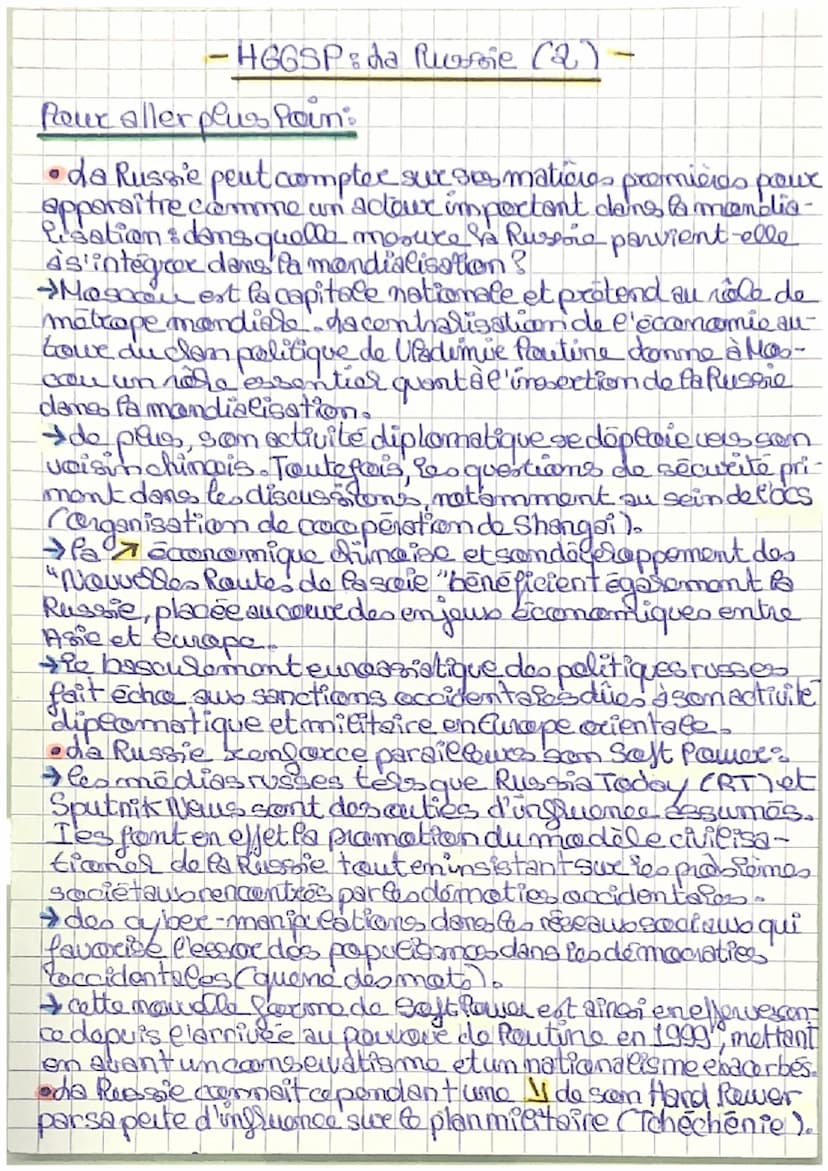 - HGGSP : La Russie (2) -
Pour aller plus loin :
• La Russie peut compter sur ses matières premières pour
apparaître comme un acteur important dans la mondia-
lisation : dans quelle mesure la Russie parvient-elle
à s'intégrer dans la mondialisation ?
→ Moscou est la capitale nationale et prétend au rôle de
métrope mondiale. La centralisation de l'économie au-
tour du clan politique de Vladimir Poutine donne à Mos-
cou un rôle essentiel quant à l'insertion de la Russie
dans la mondialisation.
→ de plus, son activité diplomatique se déploie vers son
voisin chinois. Toutefois, les questions de sécurité pri-
ment dans les discussions, notamment au sein de l'OCS
(Organisation de coopération de Shangai).
→ la ↗ économique chinoise et son développement des
"Nouvelles Routes de la soie" bénéficient également la
Russie, placée au coeur des enjeux économiques entre
Asie et Europe.
→ le basculement eurasiatique des politiques russes
fait écho aux sanctions occidentales dûes à son activité
diplomatique et militaire en Europe orientale.
• La Russie renforce par ailleurs son Soft Power :
→ les médias russes tels que Russia Today (RT) et
Sputnik News sont des outils d'influence assumés.
Ils font en effet la promotion du modèle civilisa-
tionnel de la Russie tout en insistant sur les problèmes
sociétaux rencontrés par les démocraties occidentales.
→ des cyber-manipulations dans les réseaux sociaux qui
favorise l'essor des populismes dans les démocraties
occidentales (guerre des mots).
→ cette nouvelle forme de Soft Power est ainsi en effervescen-
ce depuis l'arrivée au pouvoir de Poutine en 1999, mettant
en avant un conservatisme et un nationalisme exacerbés.
• La Russie connaît cependant une ↘ de son Hard Power
par sa perte d'influence sur le plan militaire (Tchéchénie).